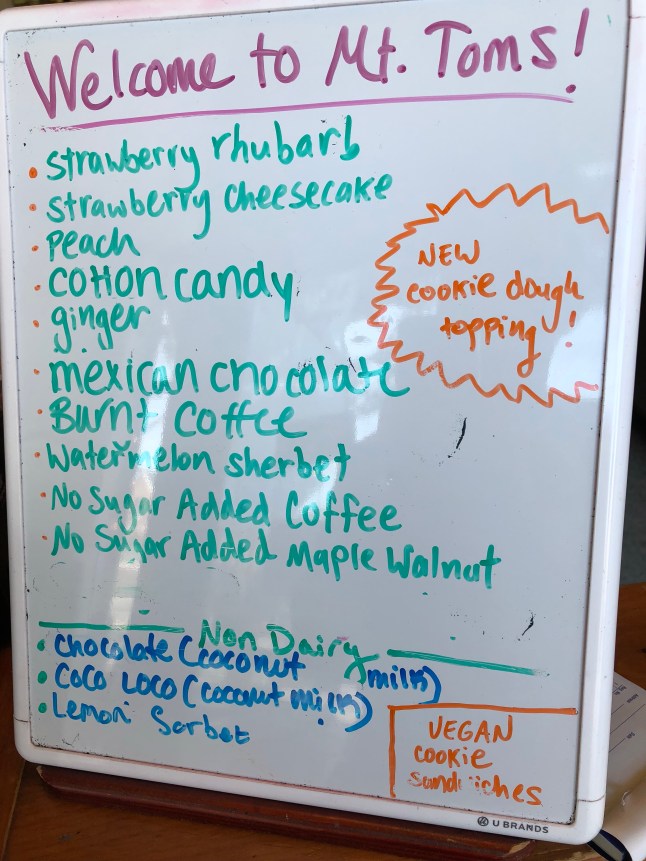 Welcome to Mt. Toms!
• strawberry rhubarb
• strawberry cheesecake
• Peach
• cotton candy
• ginger
• mexican chocolate
• Burnt Coffee
• Watermelon sherbet
• No Sugar Added Coffee
• No Sugar Added Maple Walnut
NEW
cookie dough
topping!
Non Dairy
• Chocolate (coconut milk)
• Coco Loco (coconut milk)
• Lemon Sorbet
VEGAN
cookie
sandwiches
U BRANDS